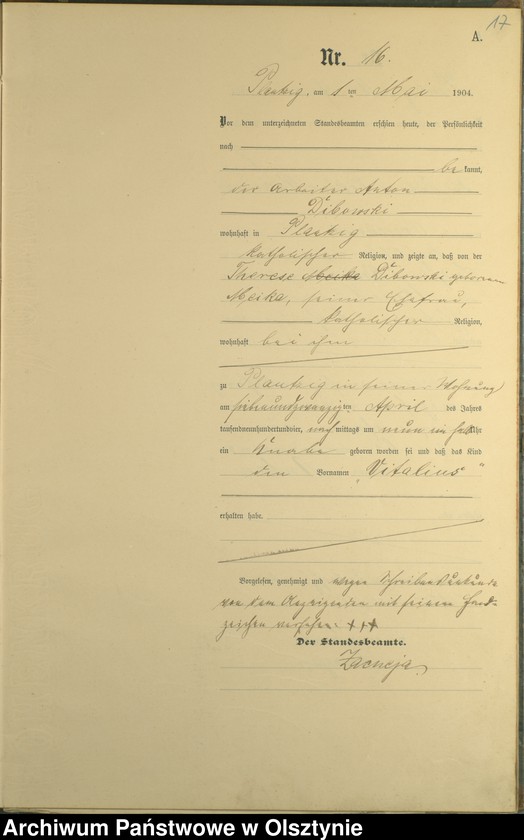 17
A.
Nr. 16.
Plautzig, am 1 ten Mai 1904.
Vor dem unterzeichneten Standesbeamten erschien heute, der Persönlichkeit
nach
be kannt,
der Arbeiter Anton
Dibowski
wohnhaft in Plautzig
katholischer Religion, und zeigte an, daß von der
Therese Meika Dibowski geborenen
Meika, seiner Ehefrau,
katholischer Religion,
wohnhaft bei ihm
zu Plautzig in seiner Wohnung
am siebenundzwanzig ten April des Jahres
tausendneunhundertundvier, nach mittags um neun ein halb Uhr
ein Knabe geboren worden sei und daß das Kind
den Vornamen „Vitalius"
erhalten habe.
Vorgelesen, genehmigt und wegen Schreibensunkunde
von dem Anzeigenden mit seinem Hand-
zeichen versehen: +++
Der Standesbeamte.
Archiwum Państwowe w Olsztynie